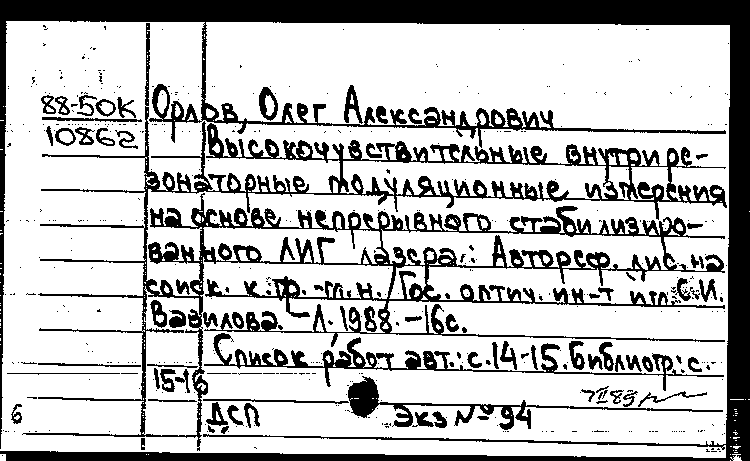 88-50К Орлов, Олег Александрович
10862 Высокочувствительные внутрире-
зонаторные модуляционные измерения
на основе непрерывного стабилизиро-
ванного ЛИГ лазера: Автореф. дис. на
соиск. к.ф.-м.н. / Гос. оптич. ин-т им. С.И.
Вавилова. - Л. 1988. - 16с.
Список работ авт.: с. 14-15. Библиогр.: с.
15-16
6 ДСП Экз № 94